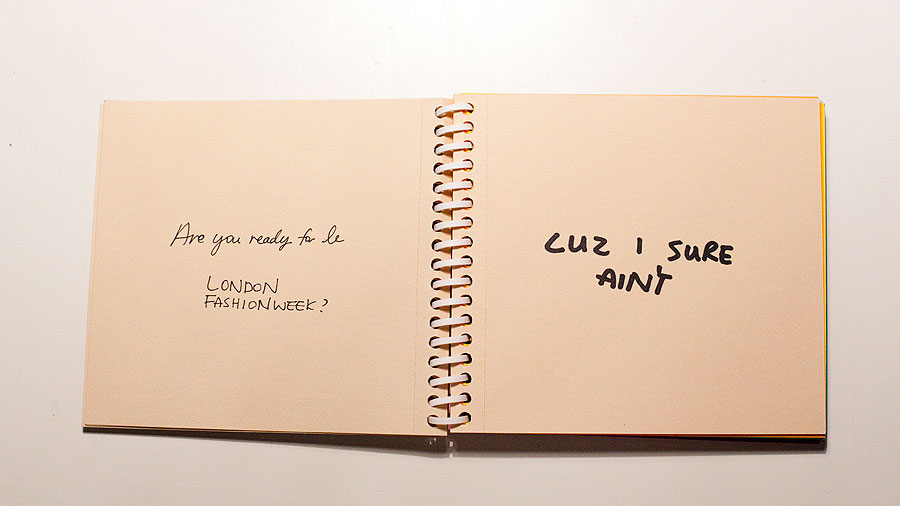 Are you ready for le
LONDON
FASHIONWEEK?
CUZ I SURE
AIN'T